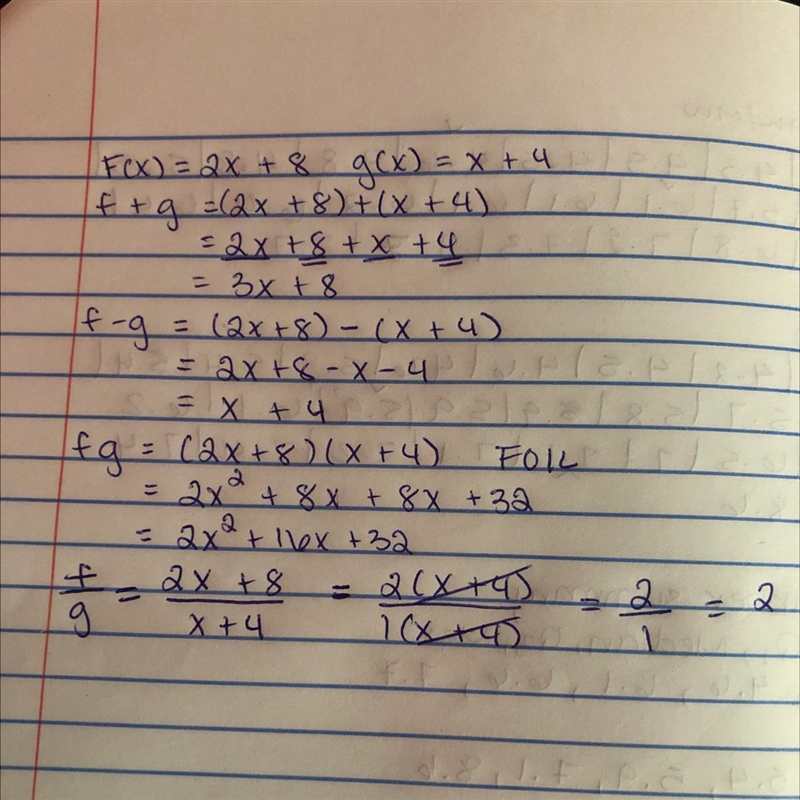 F(x) = 2x + 8 g(x) = x + 4
f + g = (2x + 8) + (x + 4)
= 2x + 8 + x + 4
= 3x + 8
f - g = (2x + 8) - (x + 4)
= 2x + 8 - x - 4
= x + 4
fg = (2x + 8)(x + 4) FOIL
= 2x² + 8x + 8x + 32
= 2x² + 16x + 32
f/g = (2x + 8)/(x + 4) = 2(x + 4)/1(x + 4) = 2/1 = 2